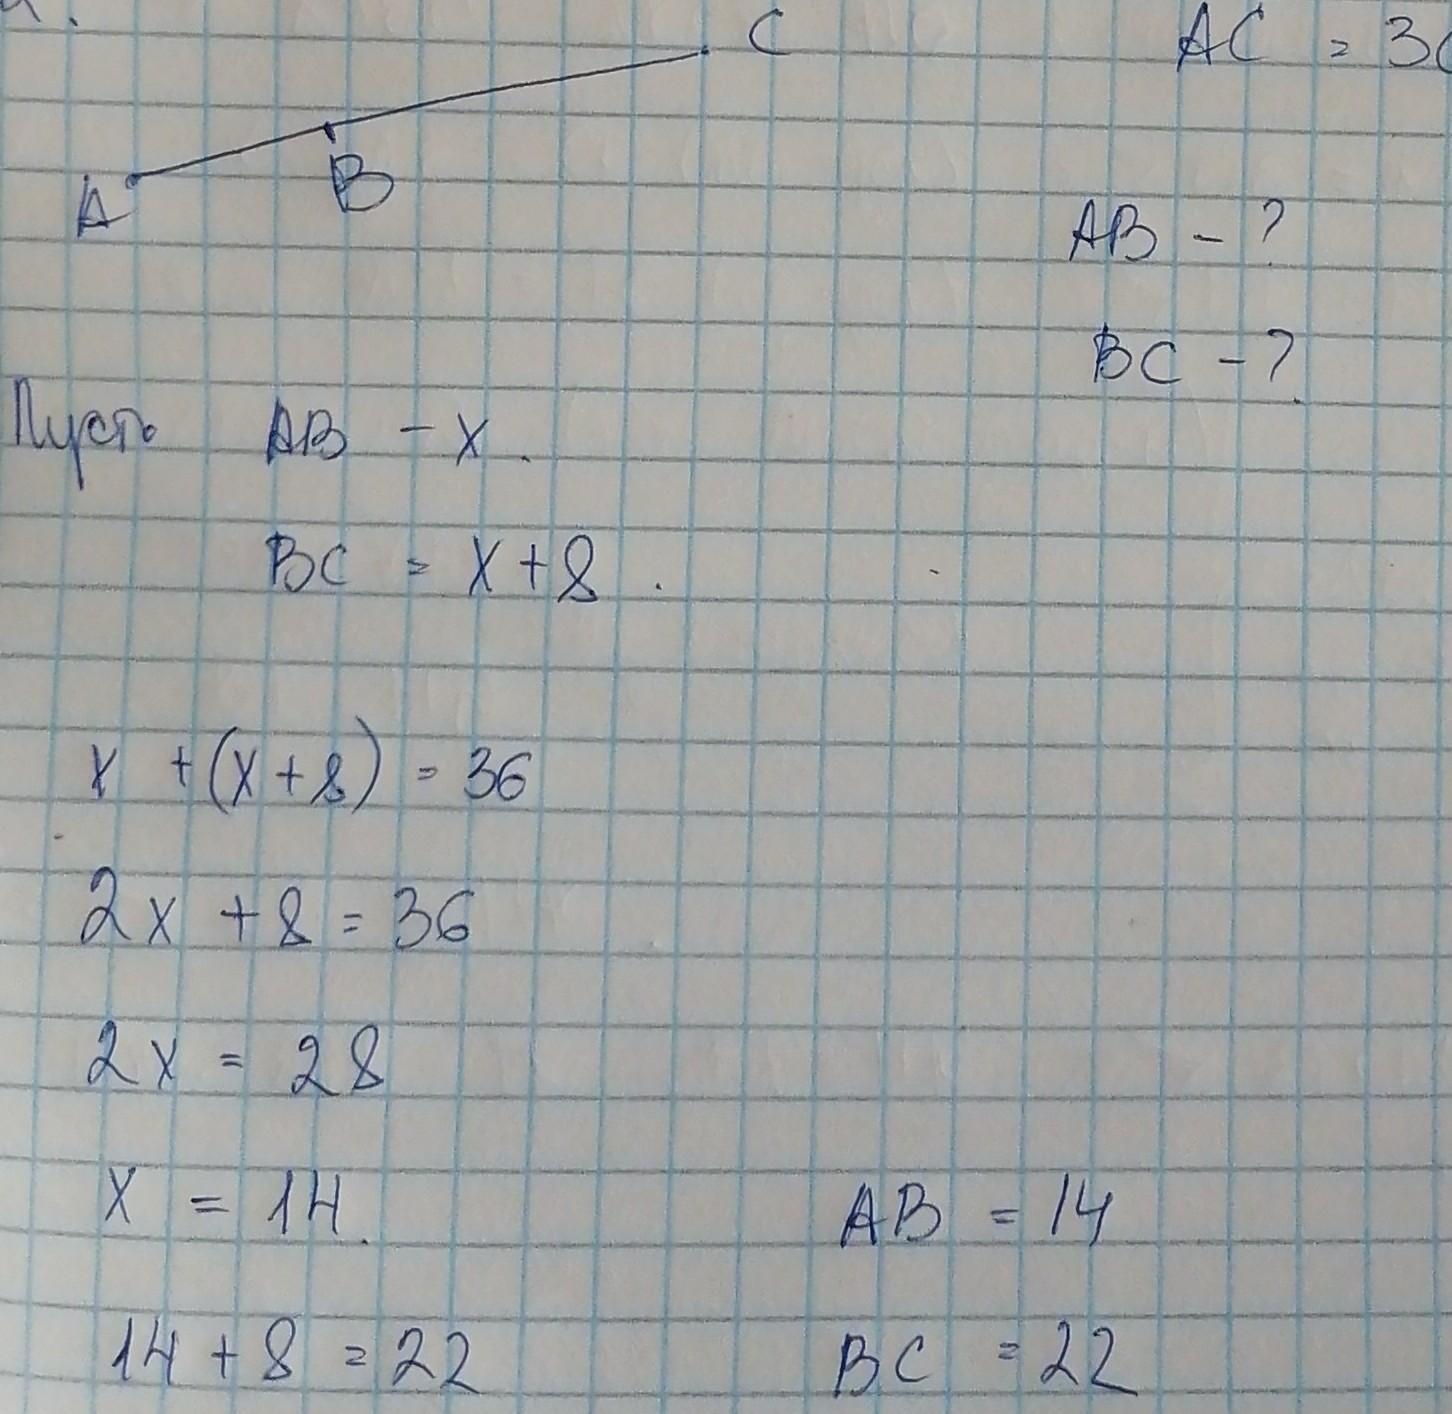 C
AC = 3
A
B
AB - ?
BC - ?
Пусть AB - x.
BC = x + 8.
x + (x + 8) = 36
2x + 8 = 36
2x = 28
x = 14.
AB = 14
14 + 8 = 22
BC = 22